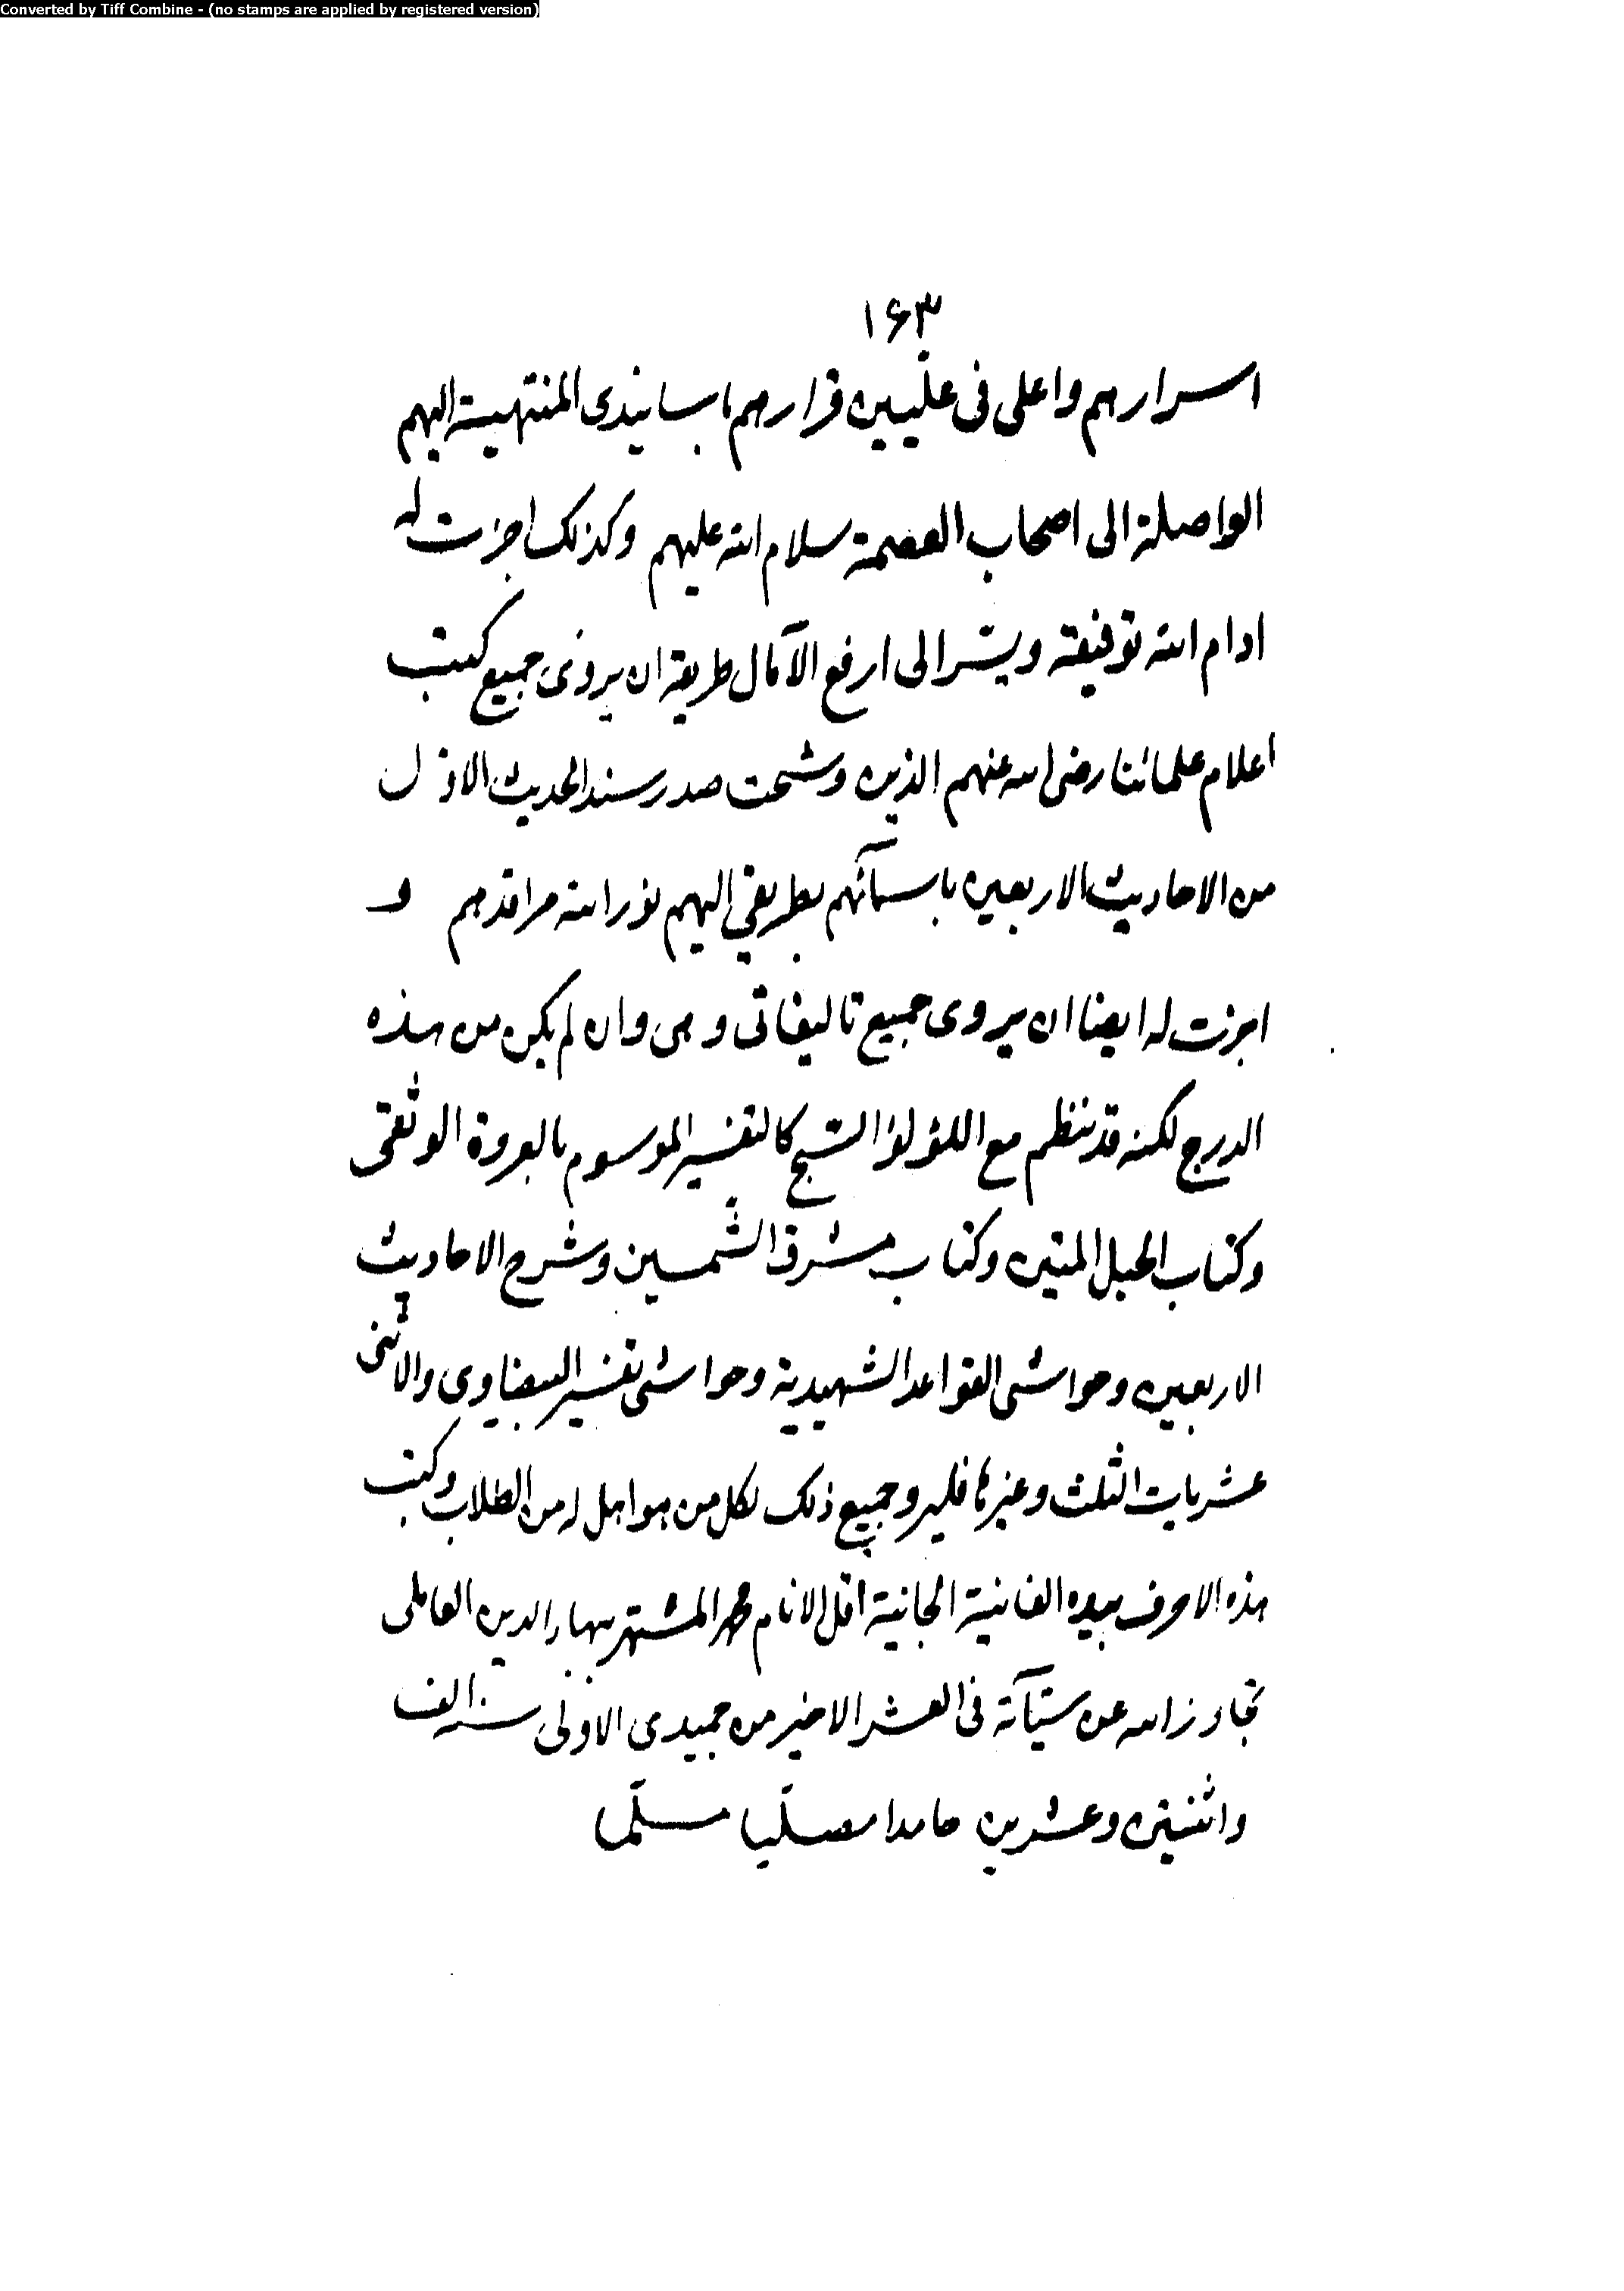 Converted by Tiff Combine - (no stamps are applied by registered version)
۱۶۳
اسرارهم واعلى فى عليّين قرارهم باسانيدى المنتهية اليهم
الواصلة الى اصحاب العصمة سلام الله عليهم وكذلك اجزت له
ادام الله توفيقه ويسّر الى ارفع الآمال طريقه ان يروى جميع كتب
اعلام علمائنا رضى الله عنهم الذين وشحت صدر سند الحديث الاوّل
من الاحاديث الاربعين باسمآئهم بطريقى اليهم نوّر الله مراقدهم و
اجزت له ايضا ان يروى جميع تاليفاتى وهى وان لم يكن من هذه
الدرج لكنه قد ننظم مع اللؤلؤ السبج كالتفسير الموسوم بالعروة الوثقى
وكتاب الحبل المتين وكتاب مشرق الشمسين وشرح الاحاديث
الاربعين وحواشى القواعد الشهيدية وحواشى تفسير البيضاوى والاثنى
عشريات الثلث وغيرها فليرو جميع ذلك لكل من هو اهل له من الطلاب وكتب
هذه الاحرف بيده الفانية الجانية اقل الانام محمد المشتهر ببهاء الدين العاملى
تجاوز الله عن سيّآته فى العشر الاخير من جميدى الاولى سنة الف
واثنين وعشرين حامدا مصلّيا مسلّما